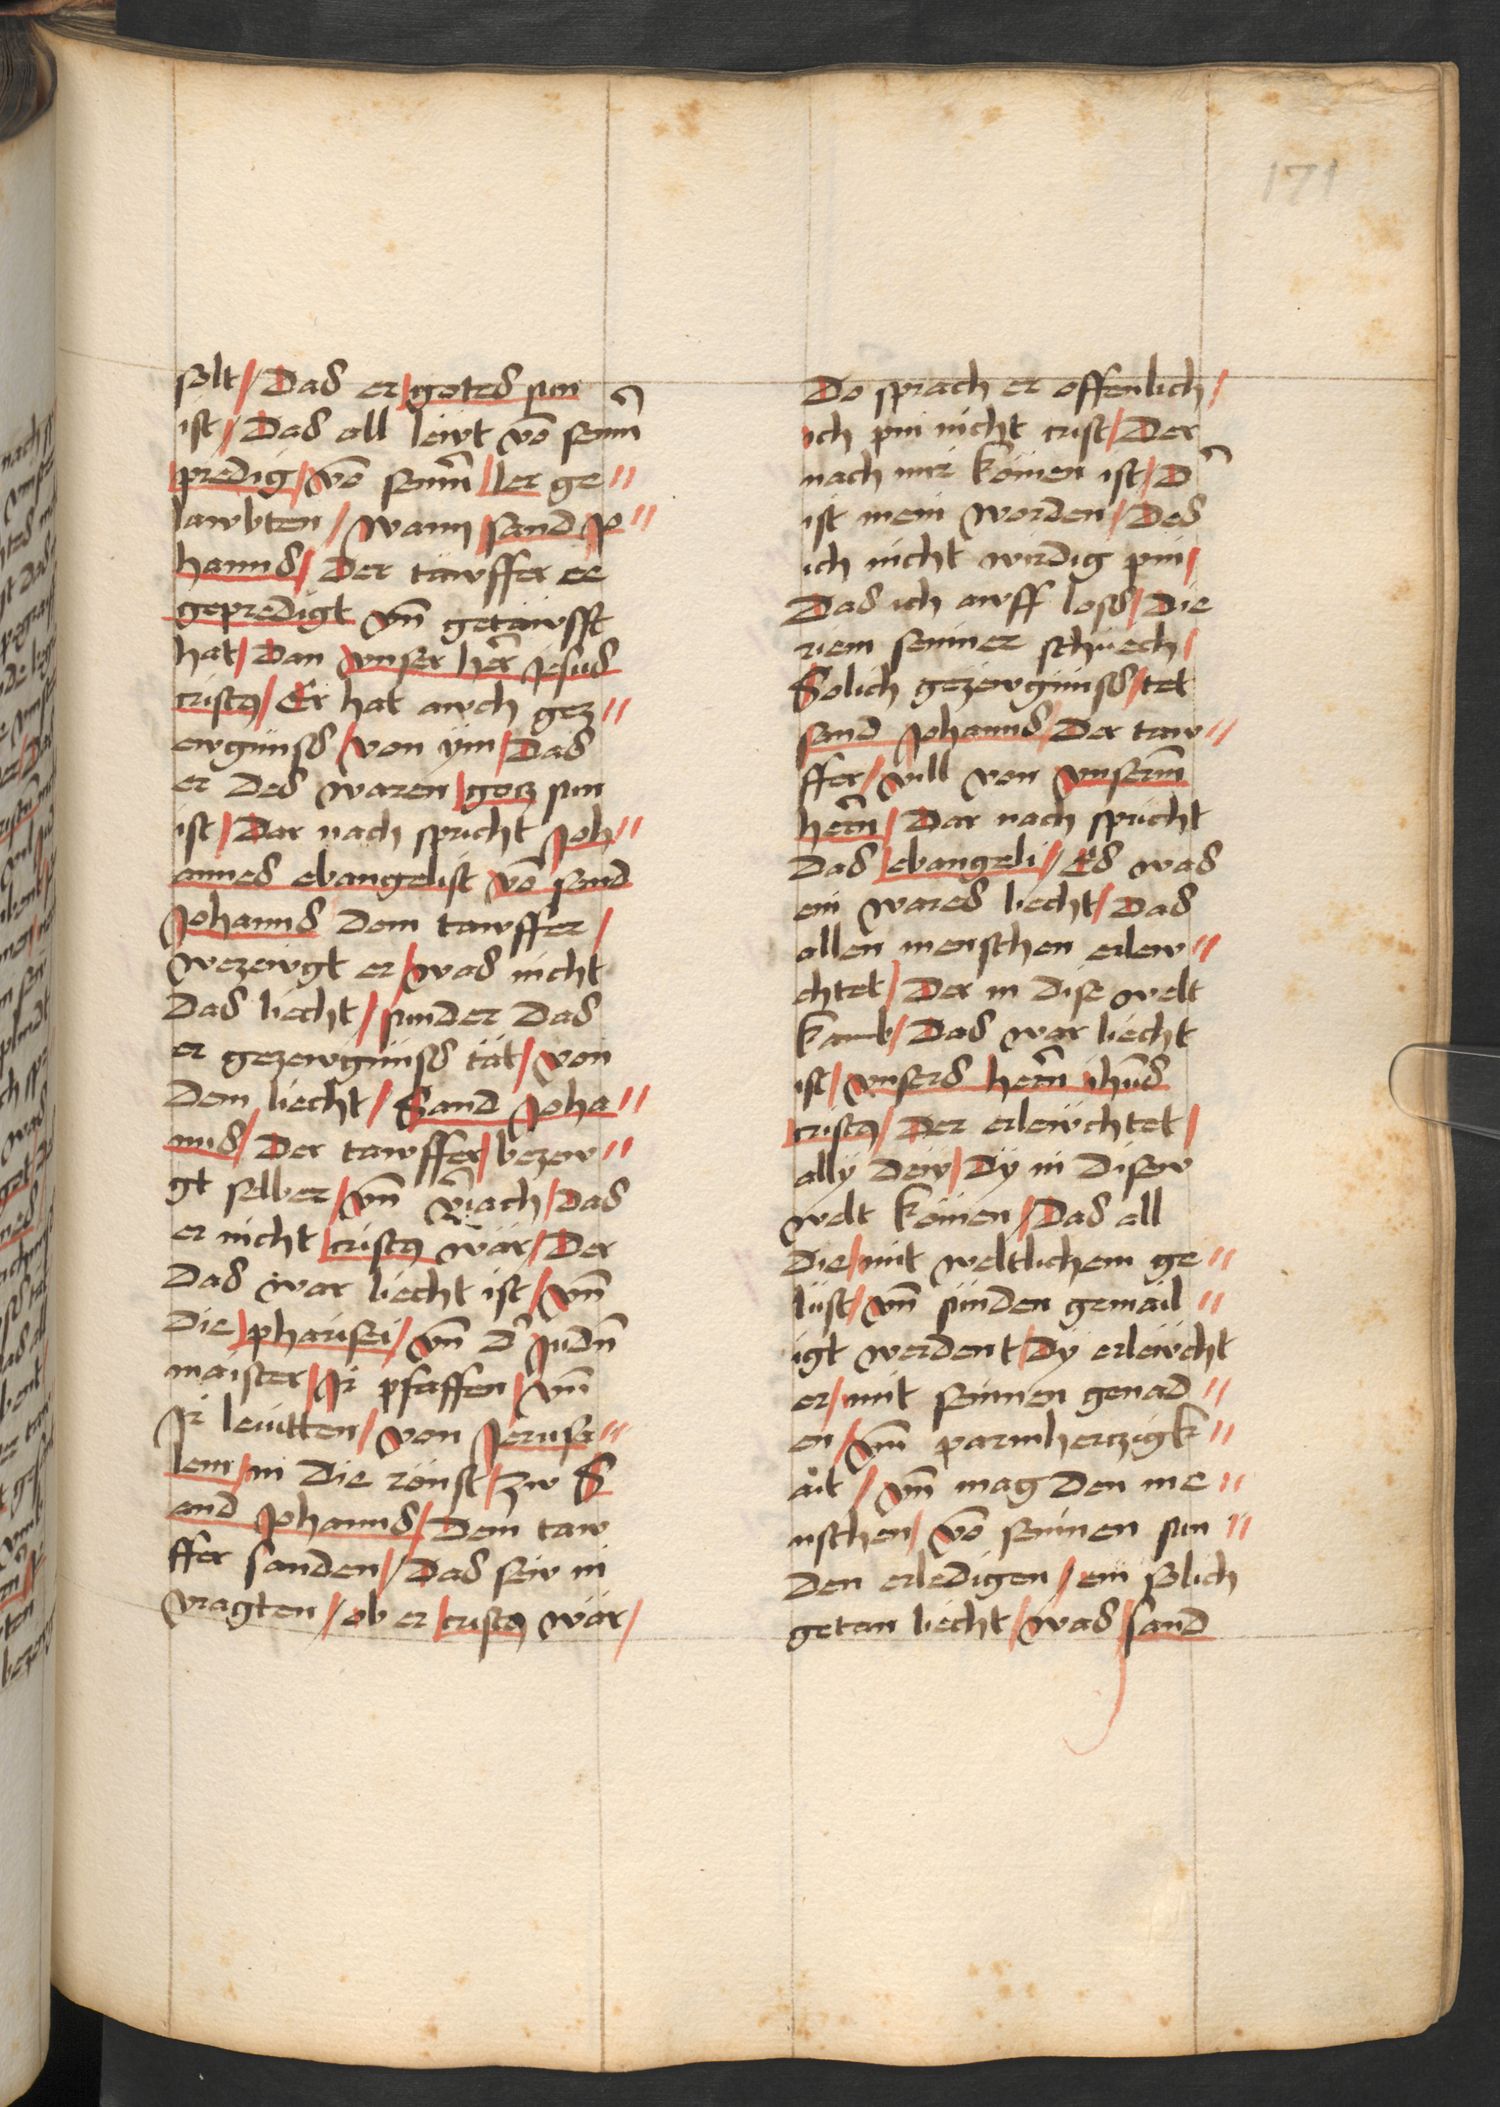 171
solt / Das er / gotes sun
ist / Das all lewt vō seinn̄
predig / vō seinn̄ / ler ge //
lawbten / wann sand Jo //
hanns / Der täwffer ee
gepredigt vn̄ getäwfft
hat / Dan vnser her̄ Jesus
cristꝯ / Er hat awch gez //
ewgnüss / von ÿm / Das
er Des waren / gotz sun
ist / Dar nach spricht Joh //
annes ebangelist vō sand
Johanns Dem tawffer /
wezewgt er / was nicht
Das liecht / sunder Das
er gezewgnüss tät / von
Dem liecht / Sand Joha //
nns / Der tawffer / bezew //
gt selber / vn̄ v̄iach / Das
er nicht / cristꝯ wär / Der
Das war liecht ist / vn̄
Die / pharisei / vn̄ d̄ Judn̄
maister / Jr pfaffen / vn̄
Jr leuitten / von Jerusa //
lem / in Die wüst / zw S
and Johanns / Dem taw
ffer sanden / Das sew in
vragten / ob er / cristꝯ wär /
Do sprach er offenlich /
ich pin nicht crist / Der
nach mir kömen ist / D̄
ist mein worden / Des
ich nicht wirdig pin /
Das ich awff loss / Die
riem seiner schuech /
Solich gezewgnüss / tet
sand Johanns / Der taw //
ffer / vill von vnserm̄
hern̄ / Dar nach spricht
Das / ebangeli / Es was
ein wares liecht / Das
allen menschen erlew //
chtet / Der in Dise welt
kamb / Das war liecht
ist / vnsers hern̄ ih̄us
cristꝯ / Der erlewchtet /
allÿ Dew / Dÿ in Disew
welt kömen / Das all
Die / mit weltlichem ge //
lüst / vn̄ sünden gemail //
igt werdent / Dÿ erlewcht
er / mit seinnen genad //
en / vn̄ parmherczigk //
ait / vn̄ mag Den me //
nschen / vō seinen sun //
Den erledigen / ein solich
getan liecht / was / sand